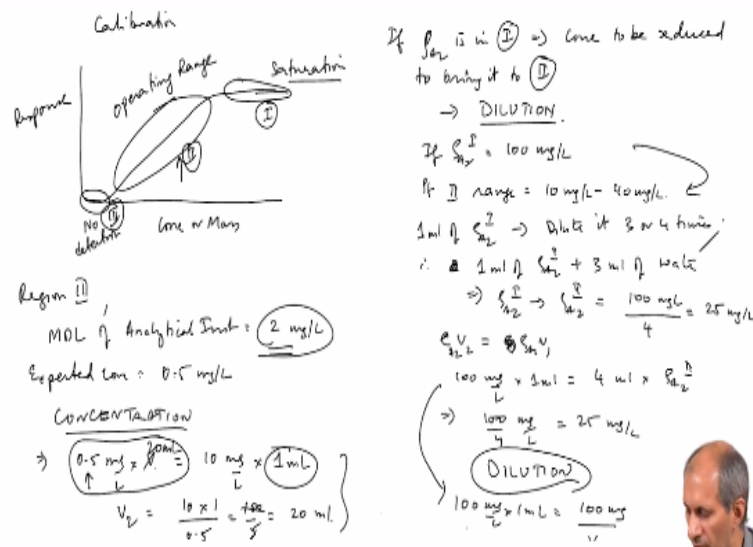 Calibration
Response
Operating Range
Saturation
I
II
No
detection
III
Conc or Mass
Region III
MDL of Analytical Inst = 2 mg/L
Expected conc = 0.5 mg/L
CONCENTRATION
⇒ 0.5 mg/L × = 10 mg/L × 1 mL
V2 = 10 × 1 / 0.5 = 100 / 5 = 20 ml
If ρA2 is in I ⇒ conc to be reduced
to bring it to II
→ DILUTION.
If ρA2 I = 100 mg/L
If II range = 10 mg/L - 40 mg/L.
1ml of ρA2 I → Dilute it 3 or 4 times.
∴ 1 ml of ρA2 + 3 ml of water
⇒ ρA2 I → ρA2 II = 100 mg/L / 4 = 25 mg/L
ρA2 V2 = ρA1 V1
100 mg/L × 1ml = 4 ml × ρA2 II
⇒ 100/4 mg/L = 25 mg/L
DILUTION
100 mg/L × 1mL = 100 mg